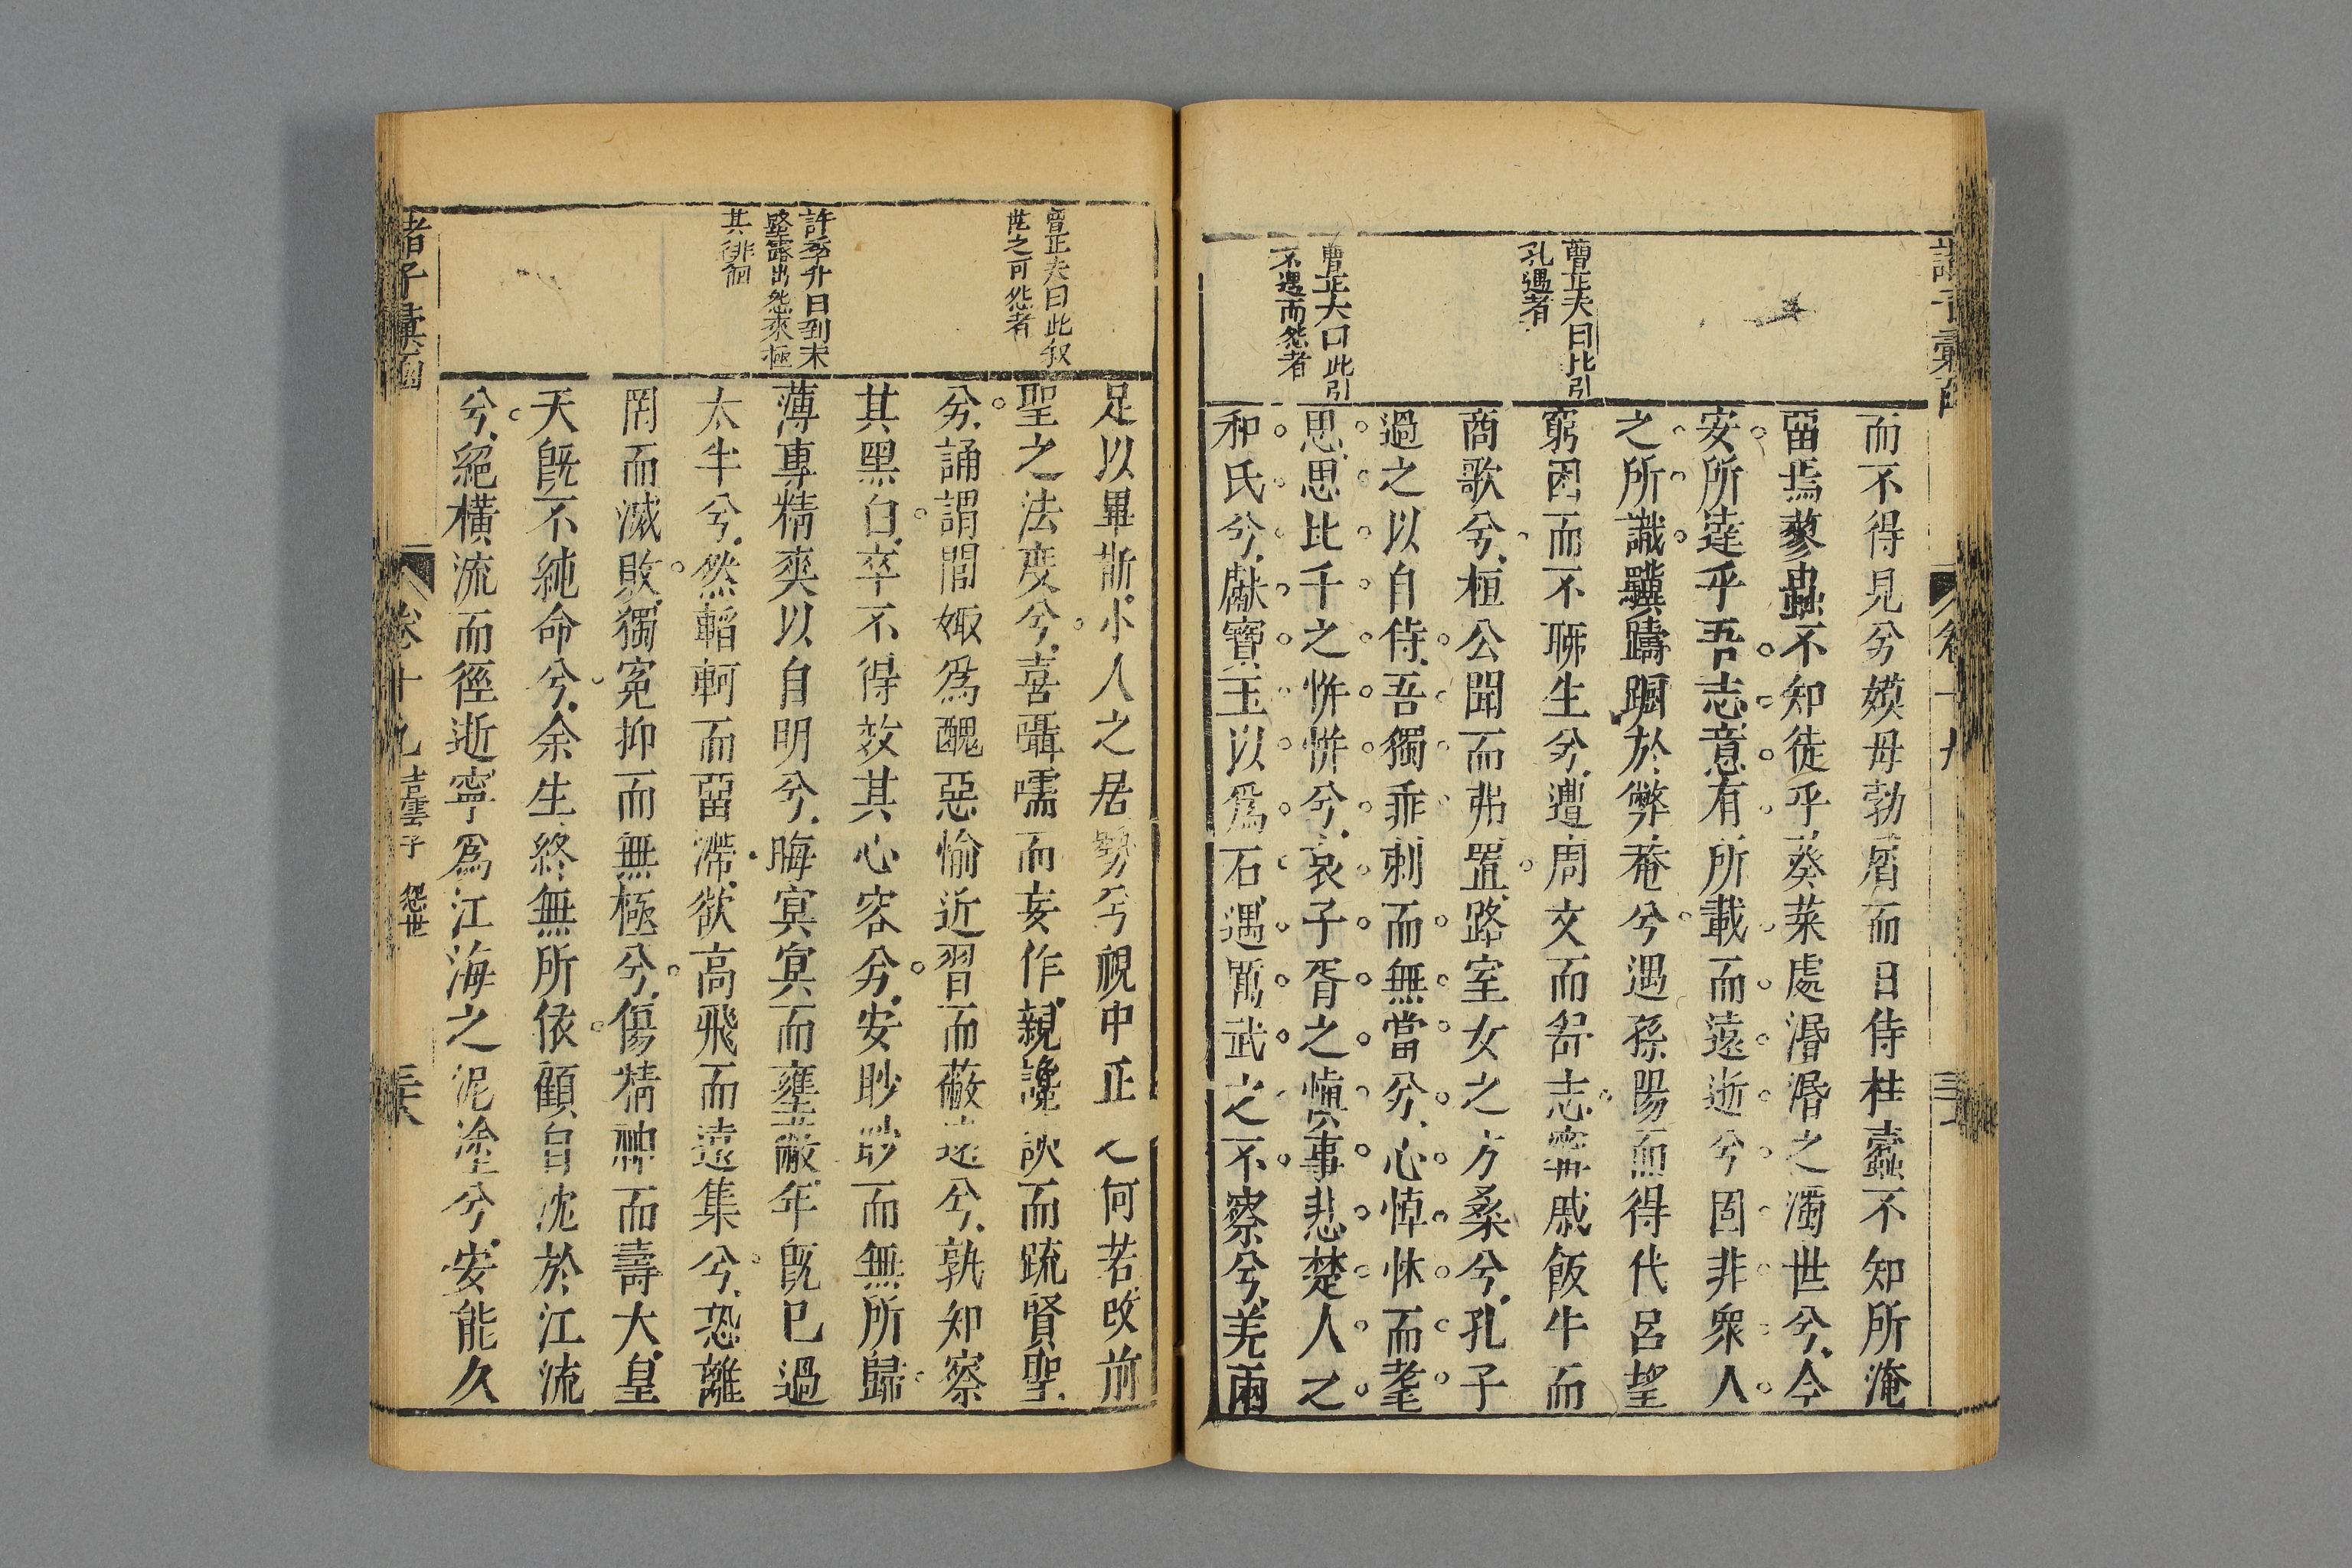 曹正夫曰此引
孔遇者
曹正夫曰此引
不遇而怨者
而不得見兮嫫母勃屑而日侍桂蠹不知所淹
留焉蓼蟲不知徙乎葵菜處湣湣之濁世兮今
安所達乎吾志意有所載而遠逝兮固非衆人
之所識驥躊躕於弊輂兮遇孫陽而得代呂望
窮困而不聊生兮遭周文而舒志甯戚飯牛而
商歌兮桓公聞而弗置路室女之方桑兮孔子
過之以自侍吾獨乖剌而無當兮心悼怵而耄
思思比干之恲恲兮哀子胥之慎事悲楚人之
和氏兮獻寶玉以爲石遇厲武之不察兮羌兩
曹正夫曰此叙
世之可怨者
許季升曰到末
路露出怨來極
其徘徊
足以畢斮小人之居勢兮視中正之何若改前
聖之法度兮喜囁嚅而妄作親讒諛而疏賢聖
兮誦謂閭娵爲醜惡愉近習而蔽遠兮孰知察
其黑白卒不得效其心容兮安眇眇而無所歸
薄專精爽以自明兮晦冥冥而壅蔽年既已過
太半兮然轗軻而留滯欲高飛而遠集兮恐離
罔而滅敗獨冤抑而無極兮傷精神而壽夭皇
天既不純命兮余生終無所依願自沈於江流
兮絕橫流而徑逝寧爲江海之泥塗兮安能久
諸子彙函
卷十九
吉雲子
怨世